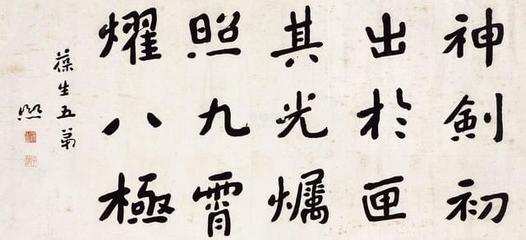 神劍初
出於匣
其光爥
照九霄
燿八極
葆生五弟
熙